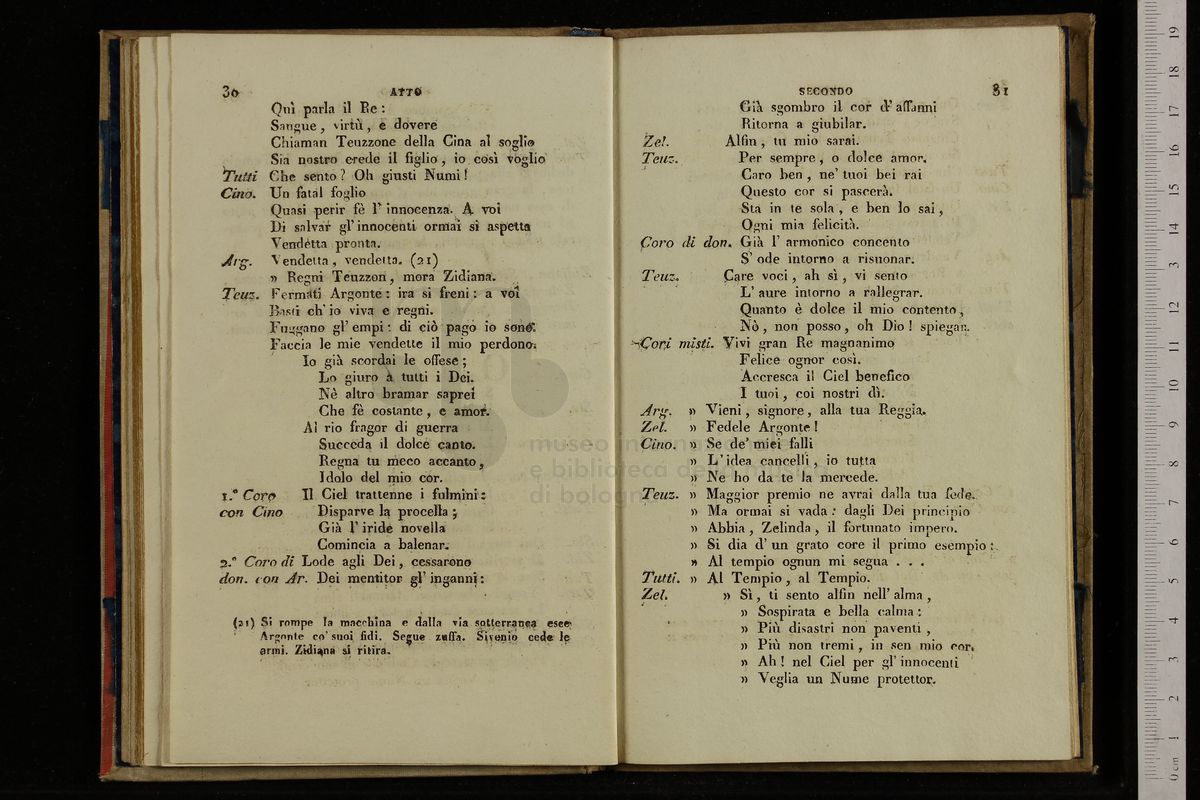 30 ATTO
Quì parla il Re :
Sangue , virtù , e dovere
Chiaman Teuzzone della Cina al soglio
Sia nostro erede il figlio , io così voglio
Tutti Che sento ? Oh giusti Numi !
Cino. Un fatal foglio
Quasi perir fè l' innocenza. A voi
Di salvar gl' innocenti ormai si aspetta
Vendetta pronta.
Arg. Vendetta , vendetta. (21)
» Regni Teuzzon , mora Zidiana.
Teuz. Fermati Argonte : ira si freni : a voi
Basti ch' io viva e regni.
Fuggano gl' empi : di ciò pago io sono.
Faccia le mie vendette il mio perdono.
Io già scordai le offese ;
Lo giuro a tutti i Dei.
Nè altro bramar saprei
Che fè costante , e amor.
Al rio fragor di guerra
Succeda il dolce canto.
Regna tu meco accanto ,
Idolo del mio cor.
1.° Coro Il Ciel trattenne i fulmini :
con Cino Disparve la procella ;
Già l' iride novella
Comincia a balenar.
2.° Coro di Lode agli Dei , cessarono
don. con Ar. Dei mentitor gl' inganni :
(21) Si rompe la macchina e dalla via sotterranea esce
Argonte co' suoi fidi. Segue zuffa. Sivenio cede le
armi. Zidiana si ritira.
SECONDO 31
Già sgombro il cor d' affanni
Ritorna a giubilar.
Zel. Alfin , tu mio sarai.
Teuz. Per sempre , o dolce amor.
Caro ben , ne' tuoi bei rai
Questo cor si pascerà.
Sta in te sola , e ben lo sai ,
Ogni mia felicità.
Coro di don. Già l' armonico concento
S' ode intorno a risuonar.
Teuz. Care voci , ah sì , vi sento
L' aure intorno a rallegrar.
Quanto è dolce il mio contento ,
Nò , non posso , oh Dio ! spiegar.
Cori misti. Vivi gran Re magnanimo
Felice ognor così.
Accresca il Ciel benefico
I tuoi , coi nostri dì.
Arg. » Vieni , signore , alla tua Reggia.
Zel. » Fedele Argonte !
Cino. » Se de' miei falli
» L' idea cancelli , io tutta
» Ne ho da te la mercede.
Teuz. » Maggior premio ne avrai dalla tua fede.
» Ma ormai si vada : dagli Dei principio
» Abbia , Zelinda , il fortunato impero.
» Si dia d' un grato core il primo esempio :
» Al tempio ognun mi segua . . .
Tutti. » Al Tempio , al Tempio.
Zel. » Sì , ti sento alfin nell' alma ,
» Sospirata e bella calma :
» Più disastri non paventi ,
» Più non tremi , in sen mio cor.
» Ah ! nel Ciel per gl' innocenti
» Veglia un Nume protettor.
museo in
e biblioteca d
di bologn
0 cm 1 2 3 4 5 6 7 8 9 10 11 12 13 14 15 16 17 18 19